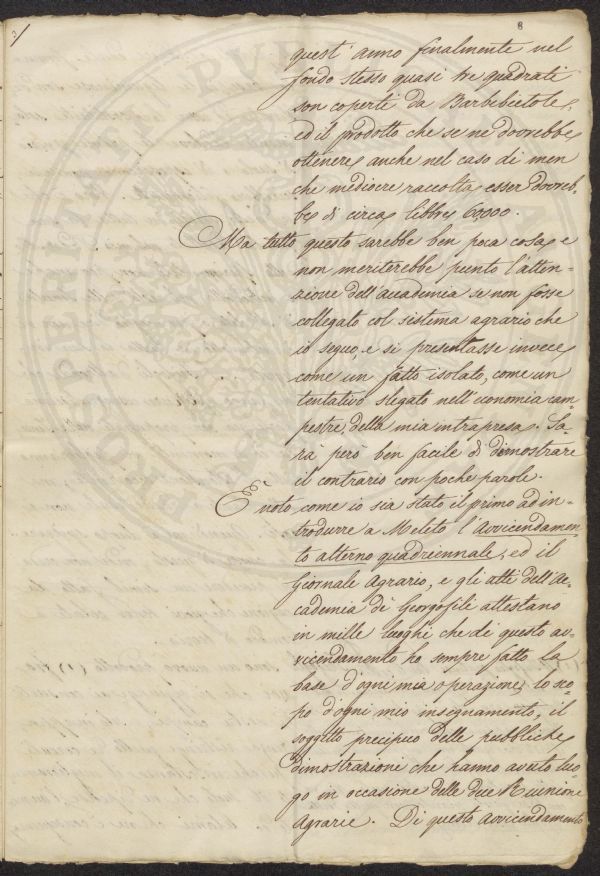 8
quest' anno finalmente nel
fondo stesso quasi tre quadrati
son coperti da Barbebietole,
ed il prodotto che se ne dovrebbe
ottenere, anche nel caso di men
che mediocre raccolta, esser dovreb-
be di circa libbre 60000.
Ma tutto questo sarebbe ben poca cosa, e
non meriterebbe punto l'atten-
zione dell'Accademia se non fosse
collegato col sistema agrario che
io seguo, e si presentasse invece
come un fatto isolato, come un
tentativo slegato nell'economia cam-
pestre della mia intrapresa. Sa-
rà però ben facile di dimostrare
il contrario con poche parole.
È noto come io sia stato il primo ad in-
trodurre a Meleto l'avvicendamen-
to alterno quadriennale, ed il
Giornale Agrario, e gli atti dell'Ac-
cademia di Georgofili attestano
in mille luoghi che di questo av-
vicendamento ho sempre fatto la
base d'ogni mia operazione, lo sco-
po d'ogni mio insegnamento, il
soggetto precipuo delle pubbliche
dimostrazioni che hanno avuto luo-
go in occasione delle due Riunioni
Agrarie. Di questo avvicendamento
PROSPERITATI PUBLICAE